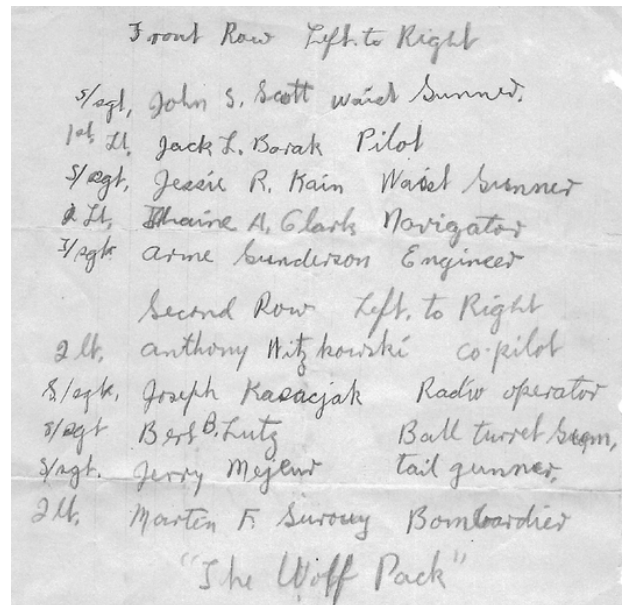 Front Row Left to Right
S/sgt, John S. Scott Waist Gunner.
1st. Lt. Jack L. Barak Pilot
S/sgt, Jessie R. Kain Waist Gunner
2 Lt, A. Clark Navigator
T/sgt. Arme Gunderson Engineer
Second Row Left. to Right
2 lt. Anthony Witzkowski co-pilot
S/sgt, Joseph Kasacjak Radio operator
S/sgt Bert B. Lutz Ball turret
S/sgt. Jerry tail gunner.
2 lt. Marten F. Bombardier
"The Wolf Pack"